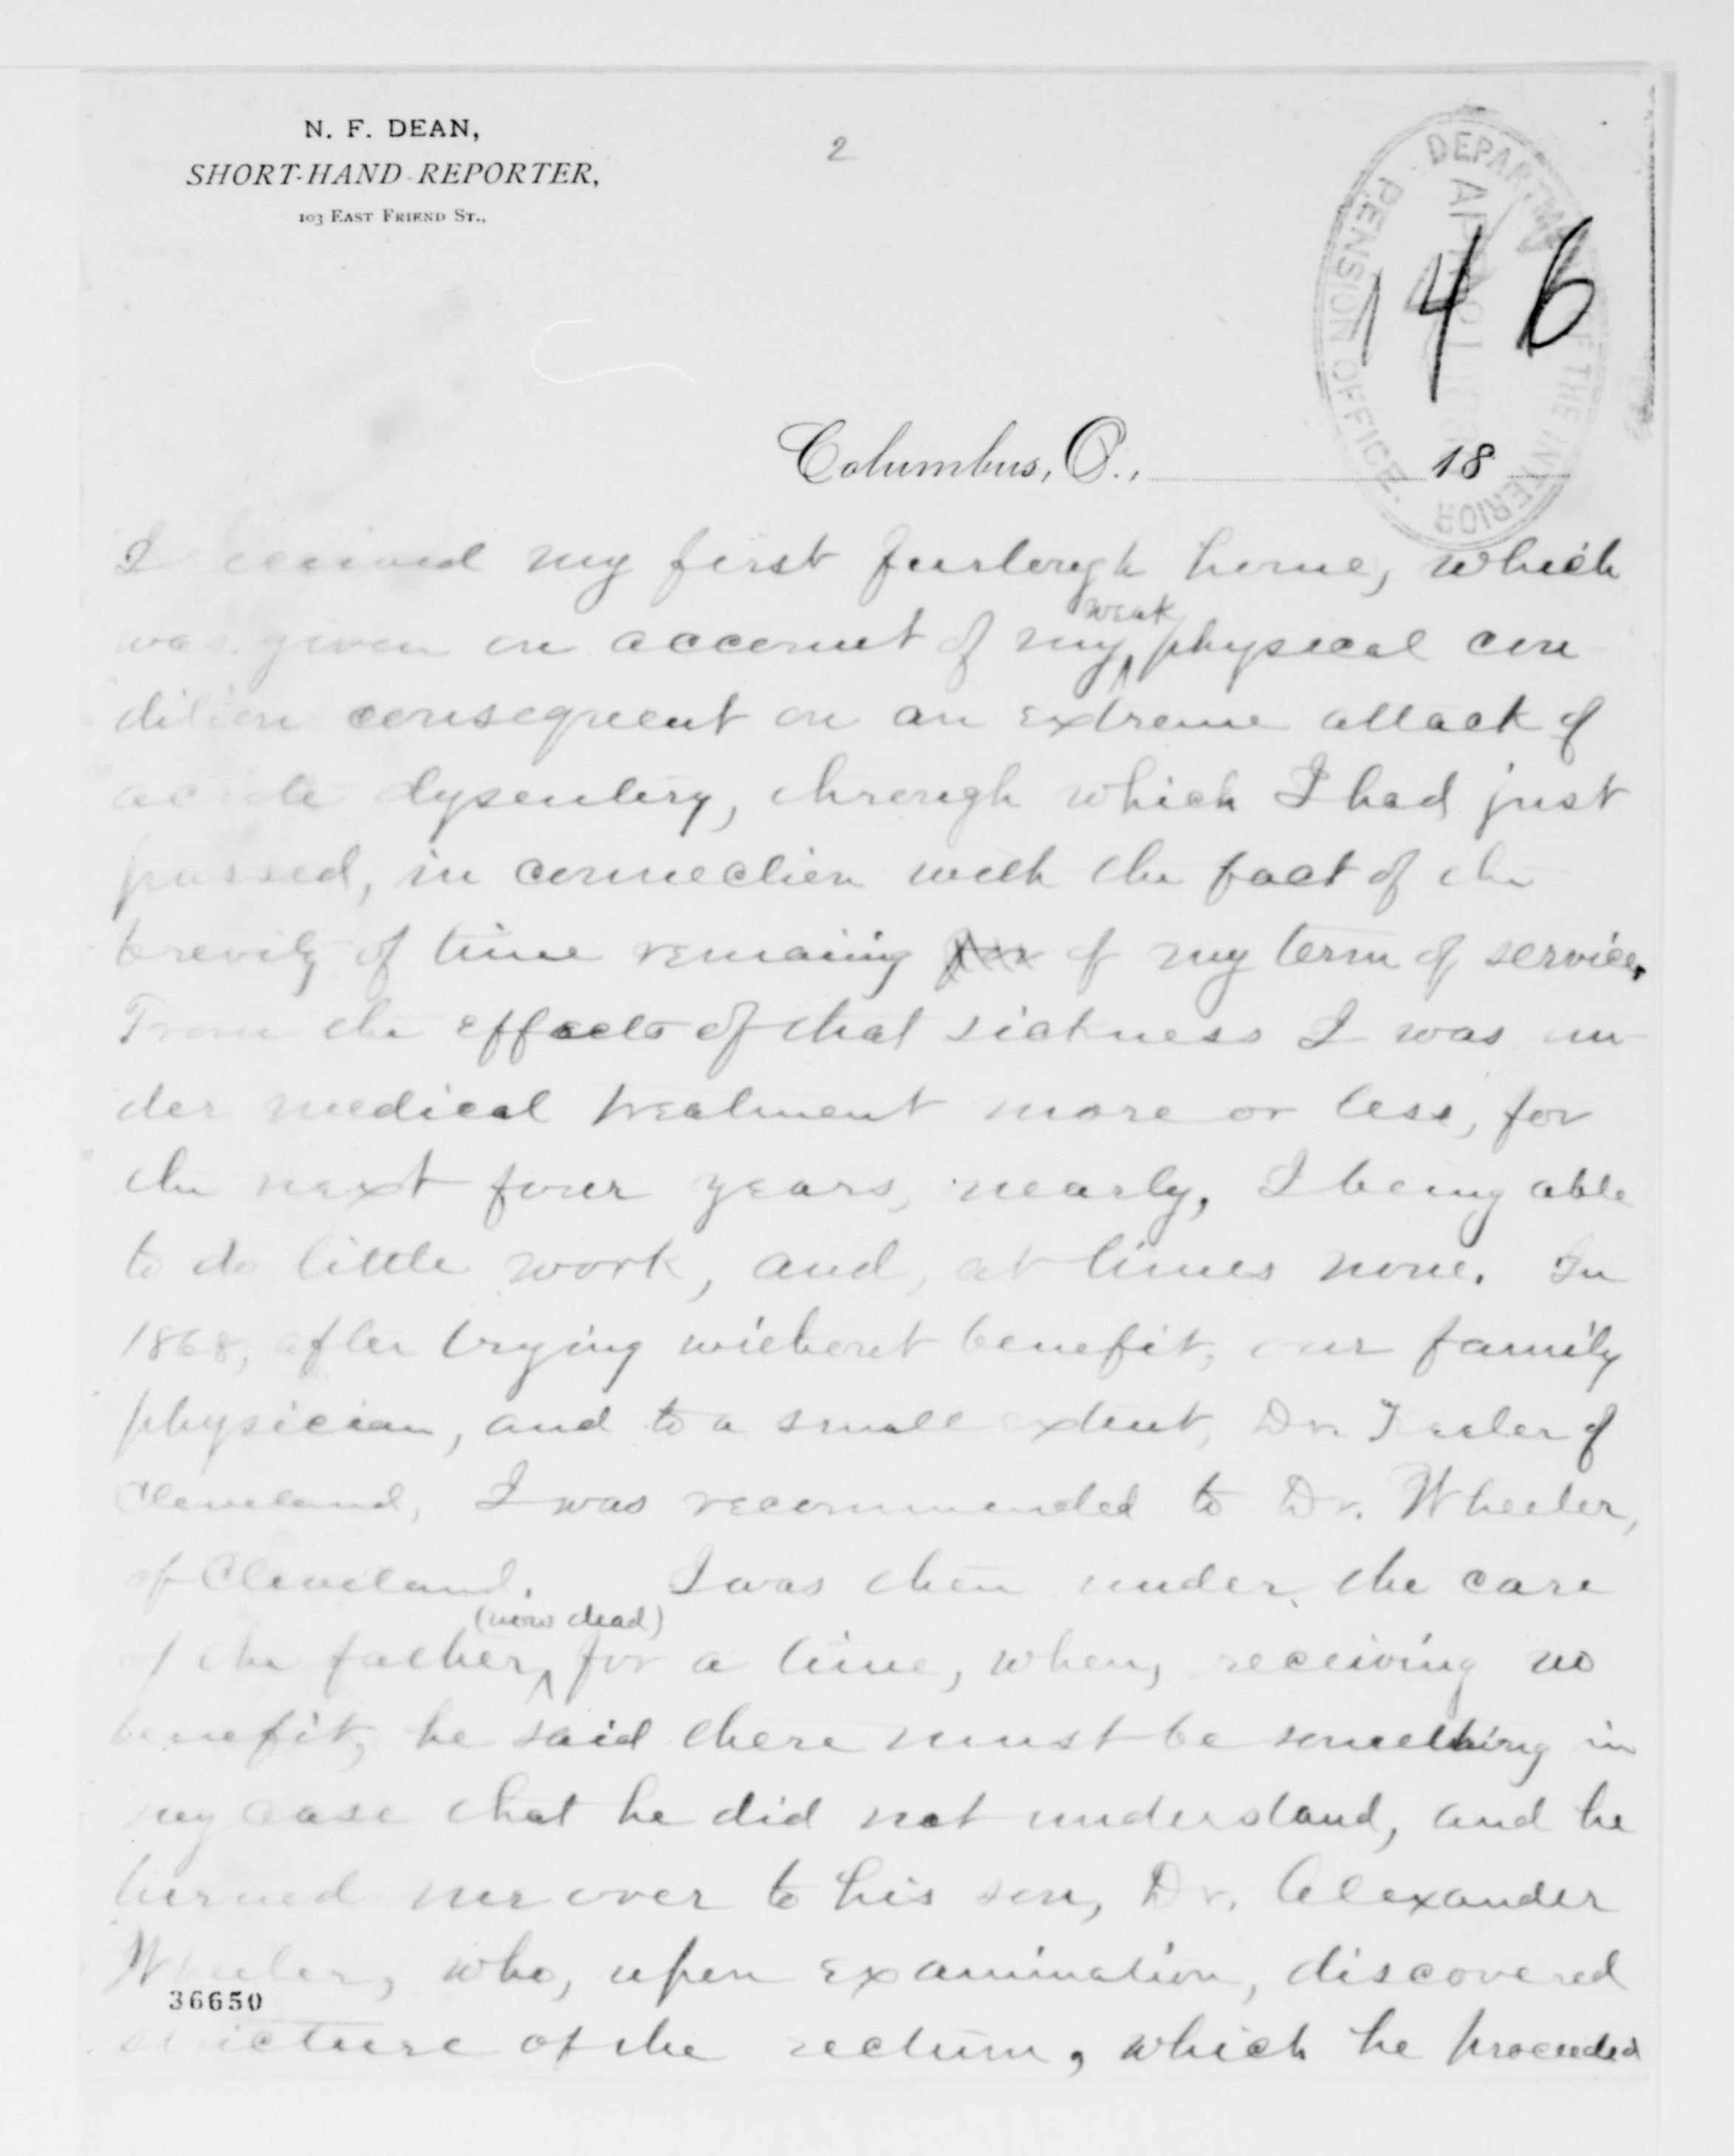 N. F. DEAN,
SHORT-HAND REPORTER,
103 EAST FRIEND ST.,
2
DEPARTMENT OF THE INTERIOR
PENSION OFFICE.
146
Columbus, O., 18
I received my first furlough home, which
was given on account of my weak physical con
dition consequent on an extreme attack of
acute dysentery, through which I had just
passed, in connection with the fact of the
brevity of time remaining for of my term of service.
From the effects of that sickness I was un
der medical treatment more or less, for
the next four years, nearly, I being able
to do little work, and, at times none. In
1868, after trying without benefit, our family
physician, and to a small extent, Dr. of
Cleveland, I was recommended to Dr. Wheeler,
of Cleveland. I was then under the care
of the father (now dead) for a time, when, receiving no
benefit, he said there must be something in
my case that he did not understand, and he
turned me over to his son, Dr. Alexander
Wheeler, who, upon examination, discovered
36650
stricture of the rectum, which he proceeded